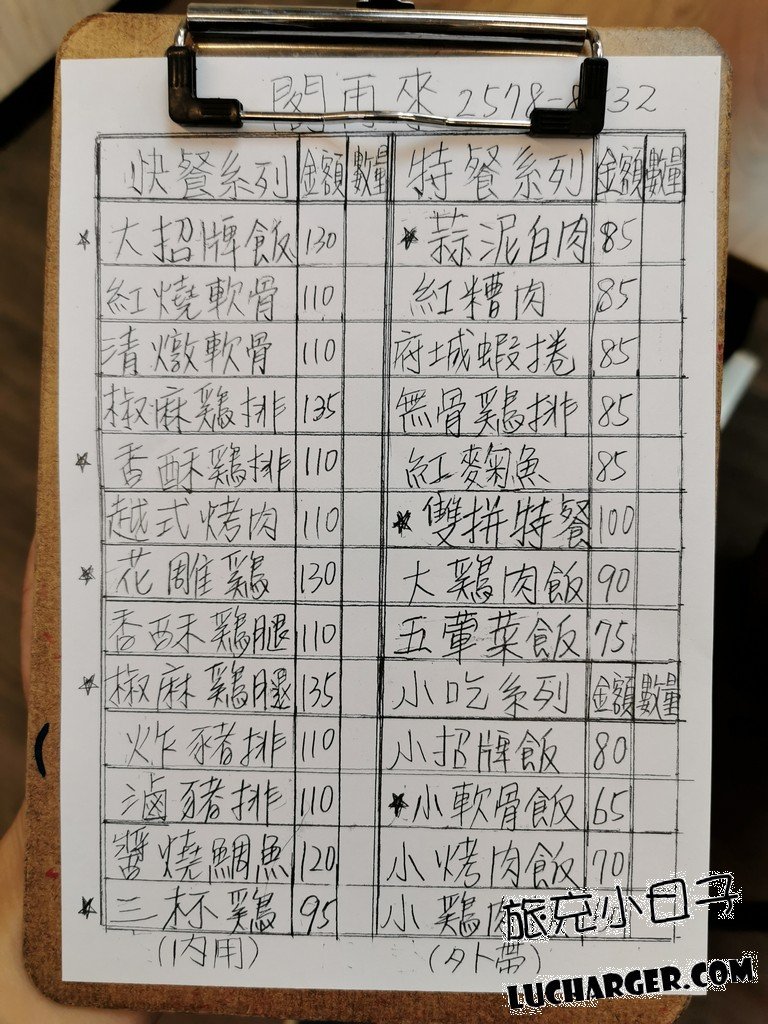 閤再來 2578-8
32
快餐系列 金額 數量 特餐系列 金額 數量
☆ 大招牌飯 130 ★ 蒜泥白肉 85
紅燒軟骨 110 紅糟肉 85
清燉軟骨 110 府城蝦捲 85
椒麻鷄排 135 無骨鷄排 85
☆ 香酥鷄排 110 紅麴魚 85
越式烤肉 110 ★ 雙拼特餐 100
☆ 花雕鷄 130 大鷄肉飯 90
香酥鷄腿 110 五葷菜飯 75
☆ 椒麻鷄腿 135 小吃系列 金額 數量
炸豬排 110 小招牌飯 80
滷豬排 110 ★ 小軟骨飯 65
醬燒鯛魚 120 小烤肉飯 70
☆ 三杯鷄 95 小鷄肉
(內用) (外帶)
旅充小日子
LUCHARGER.COM